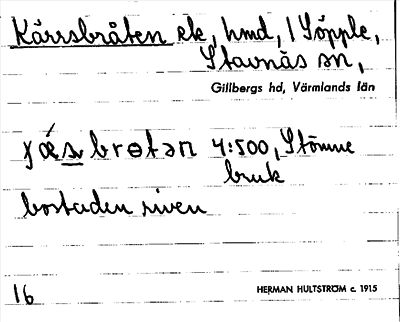 Kärrsbråten elc, hmd, / Söpple,
Stavnäs sn,
Gillbergs hd, Värmlands län
bròtən 4:500, Stömne
bruk
bostaden riven
16 HERMAN HULTSTRÖM c. 1915